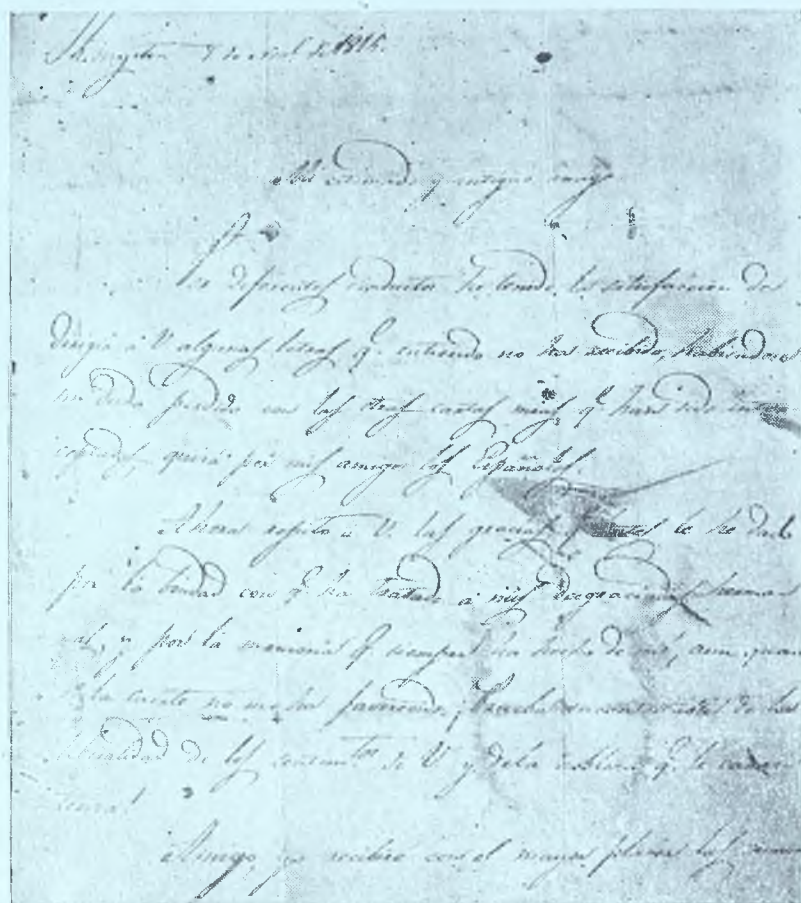 Kingston 7 de abril de 1816.
Mi estimado y antiguo amigo
Por diferentes conductos he tenido la satisfaccion de
dirigir á V. algunas letras q. entiendo no ha recibido, habiendose
sin duda perdido con las otras cartas mias, q. han sido inter-
ceptadas quizá por mis amigos los Españoles.
Ahora repito á V. las gracias q. antes le he dado
por la bondad con q. ha tratado a mis desgraciadas herma-
nas, y por la memoria q. siempre ha hecho de mi, aun quan-
do la suerte no me ha favorecido; prueba de la
liberalidad de los sentim.tos de V. y de la nobleza q. le carac-
teriza!
Amigo, yo recibiré con el mayor placer las